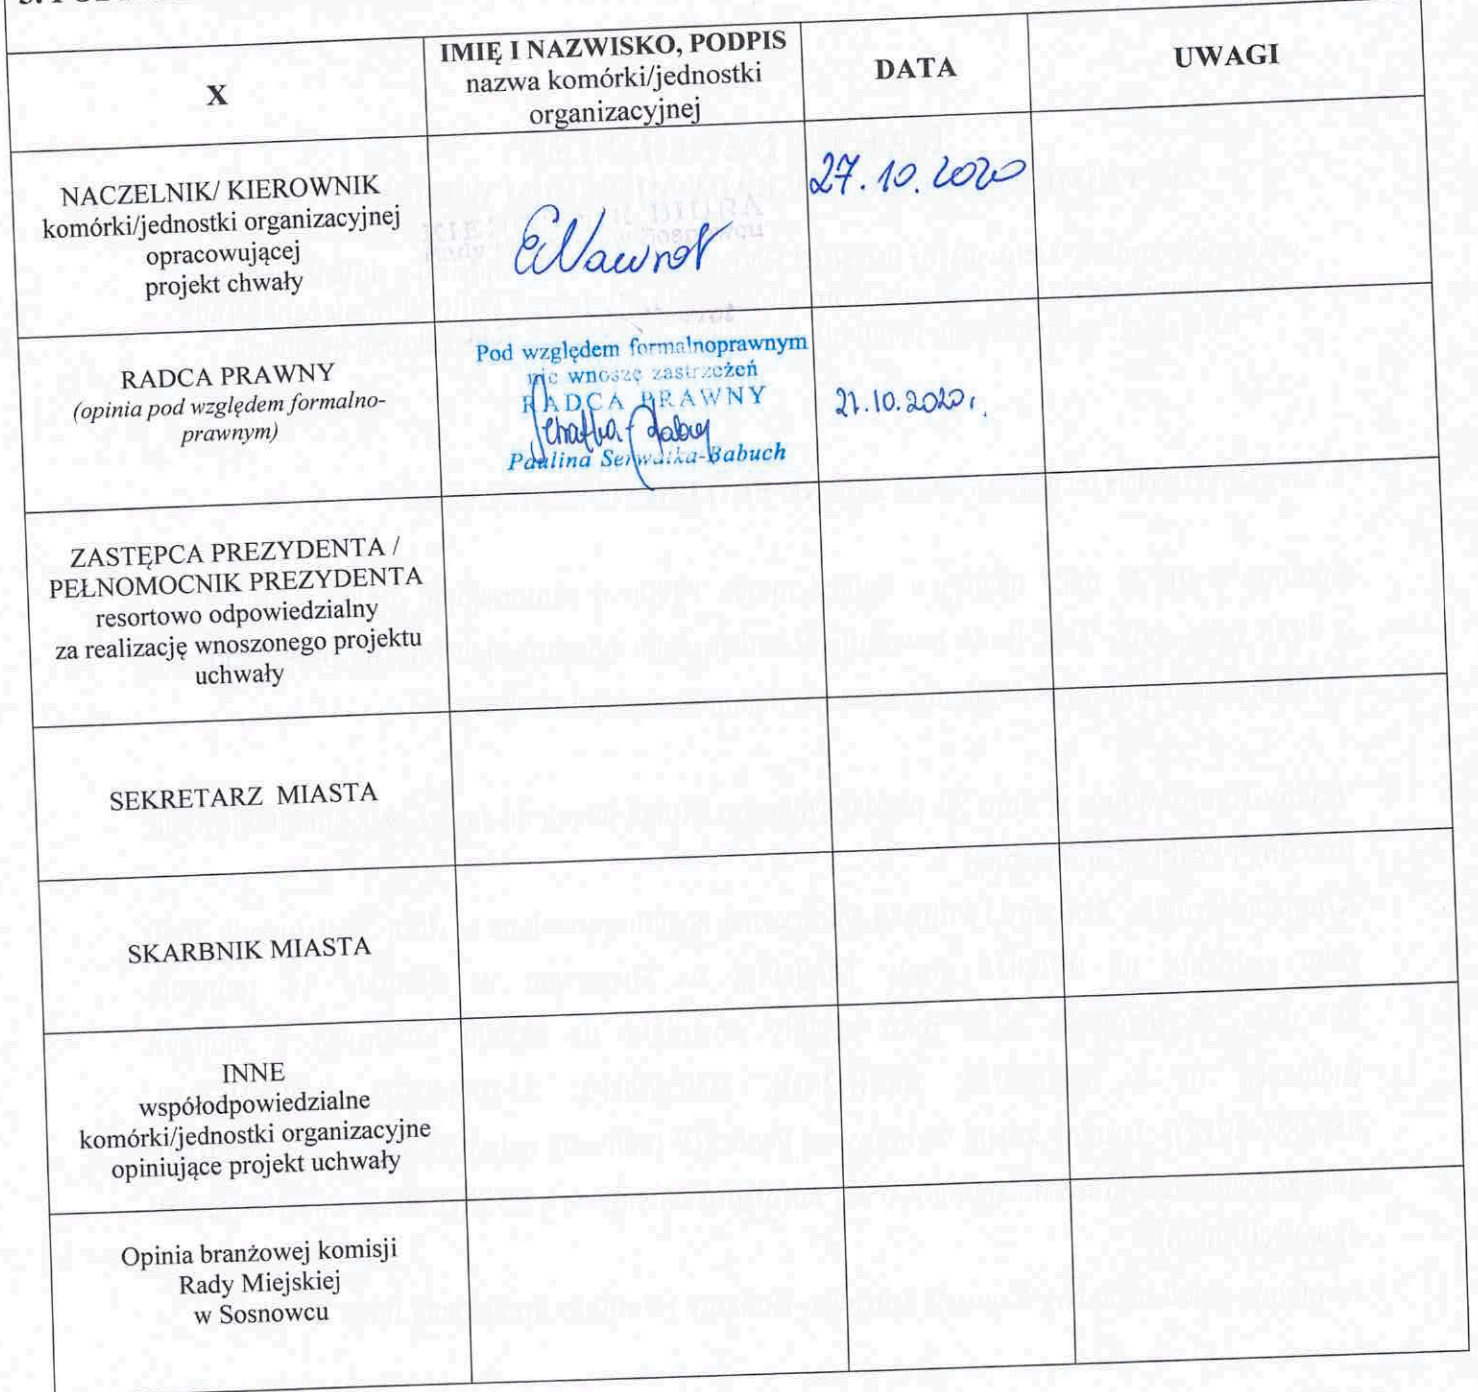 X
IMIĘ I NAZWISKO, PODPIS
nazwa komórki/jednostki
organizacyjnej
DATA
UWAGI
NACZELNIK/ KIEROWNIK
komórki/jednostki organizacyjnej
opracowującej
projekt chwały
ENawrot
27.10.2020
RADCA PRAWNY
(opinia pod względem formalno-
prawnym)
Pod względem formalnoprawnym
nie wnoszę zastrzeżeń
RADCA PRAWNY
Paulina Serwatka-Babuch
21.10.2020r.
ZASTĘPCA PREZYDENTA /
PEŁNOMOCNIK PREZYDENTA
resortowo odpowiedzialny
za realizację wnoszonego projektu
uchwały
SEKRETARZ MIASTA
SKARBNIK MIASTA
INNE
współodpowiedzialne
komórki/jednostki organizacyjne
opiniujące projekt uchwały
Opinia branżowej komisji
Rady Miejskiej
w Sosnowcu